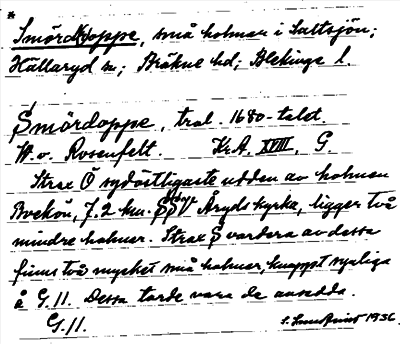 *
Smördoppe, små holmar i Saltsjön;
Hällaryd sn; Bräkne hd; Blekinge l.
Smördoppe, trol. 1680-talet.
W. v. Rosenfelt. Kr.A. XVIII, G
Strax Ö sydöstligaste udden av holmen
Bockön, 7.2 km. Åryds kyrka, ligger två
mindre holmar. Strax S vardera av dessa
finns två mycket små holmar, knappt synliga
å G.11. Dessa torde vara de avsedda.
G.11. 1936